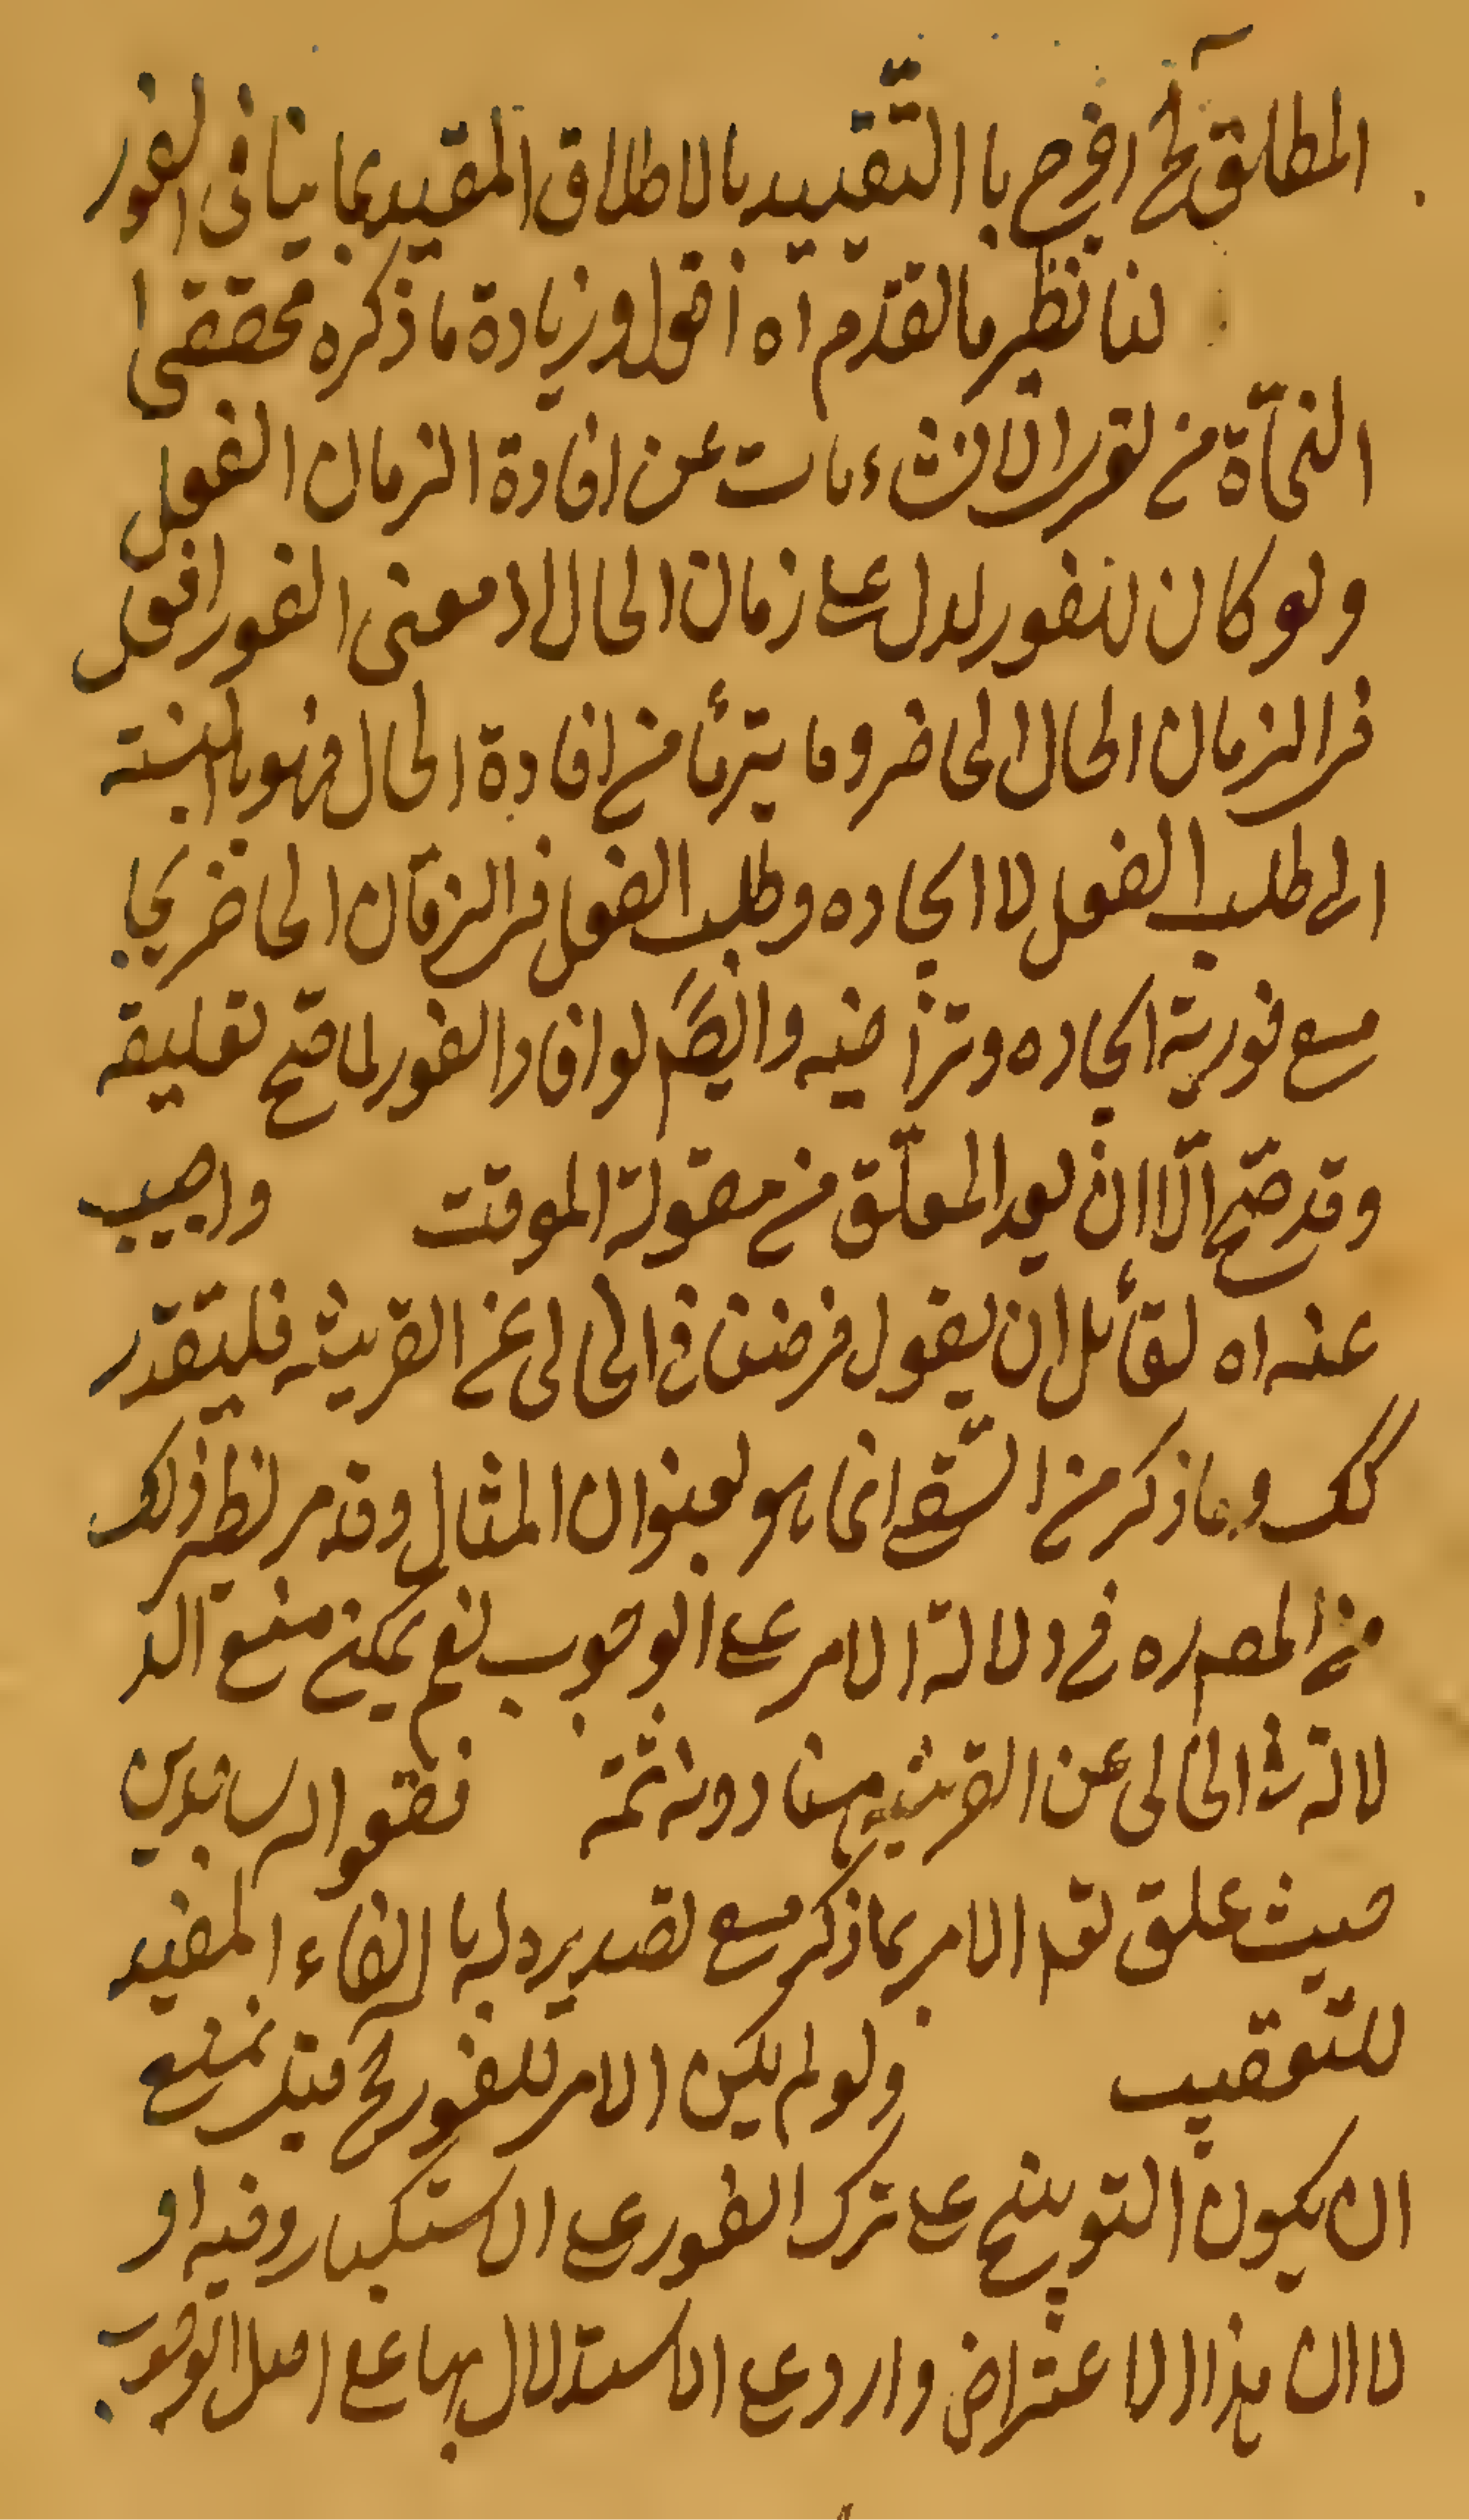 المطلق لح افرح با التقييد بالاطلاق المقيد بما ينافى الفور
لنا نظير ما لقدّم اه اقول وزيادة ما ذكره محققى ا
النحاة من لقرر الانشاءات عن افادة الزمان الفعل
ولو كان للفور لدل على زمان الحال اذ معنى الفور افعل
فى الزمان الحال الحاضر وما يترأ من افادة الحال فهو بالنسبته
الى طلب الفعل لا ايجاده وطلب الفعل فى الزمان الحاضر يجا
مع فورية ايجاده وتراخيه وايضًا لو افاد الفور لما صح تعليقه
وقد صح الا ان يعد المعلّق من مقولة الموقت واجيب
عنه اه لقائل ان يقول فرضنا فى الحالى عن القرينة فليتقدر
كك وما ذكر من السقى انما هو بعنوان المثال وقد مر نظير ذلك
من المصره فى دلالة الامر على الوجوب نعم يمكن منع الد
لالة فى الحالى عن القرينة هنا دون ثمة فقعوا له ساجدين
حيث علق تعم الامر بما ذكر مع تصديره له با الفاء المفيد
للتعقيب ولو لم يكن الامر للفور لح قبله نمنع
ان يكون التوبيخ على ترك الفور على الاستكبار وفيه او
لا ان هذا الاعتراض وارد على الاستدلال بها على اصل الوجوب